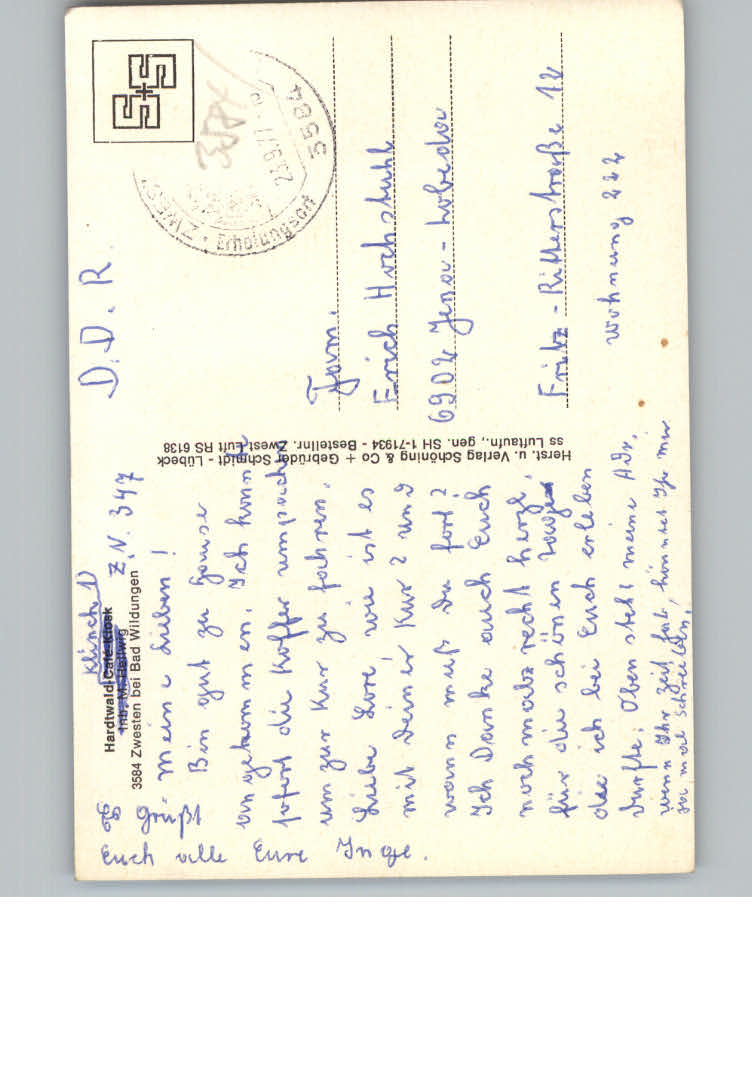 Klinik 1
Hardtwald-Café-Kiosk
Inh. M. Hellwig
Z.N. 347
3584 Zwesten bei Bad Wildungen
Meine Lieben!
Bin gut zu Hause
angekommen. Ich konnte
sofort die Koffer umpacken
um zur Kur zu fahren.
Liebe Lore wie ist es
mit Deiner Kur? und
wann mußt Du fort?
Ich Danke auch Euch
nochmals recht herzl.
für die schönen Tage
die ich bei Euch erleben
durfte. Oben steht meine Adr.
wenn Ihr Zeit habt, könnt Ihr mir
ja mal schreiben.
Es Grüßt
Euch alle Eure Inge.
Herst. u. Verlag Schöning & Co + Gebrüder Schmidt - Lübeck
ss Luftaufn., gen. SH 1-71934 - Bestellnr. Zwest Luft RS 6138
D.D.R.
S+S
3584
23.9.77
ZWESTEN
3584
Fam.
Erich Hochstuhl
6902 Jena-Lobeda
Fritz-Ritterstraße 12
Wohnung 222